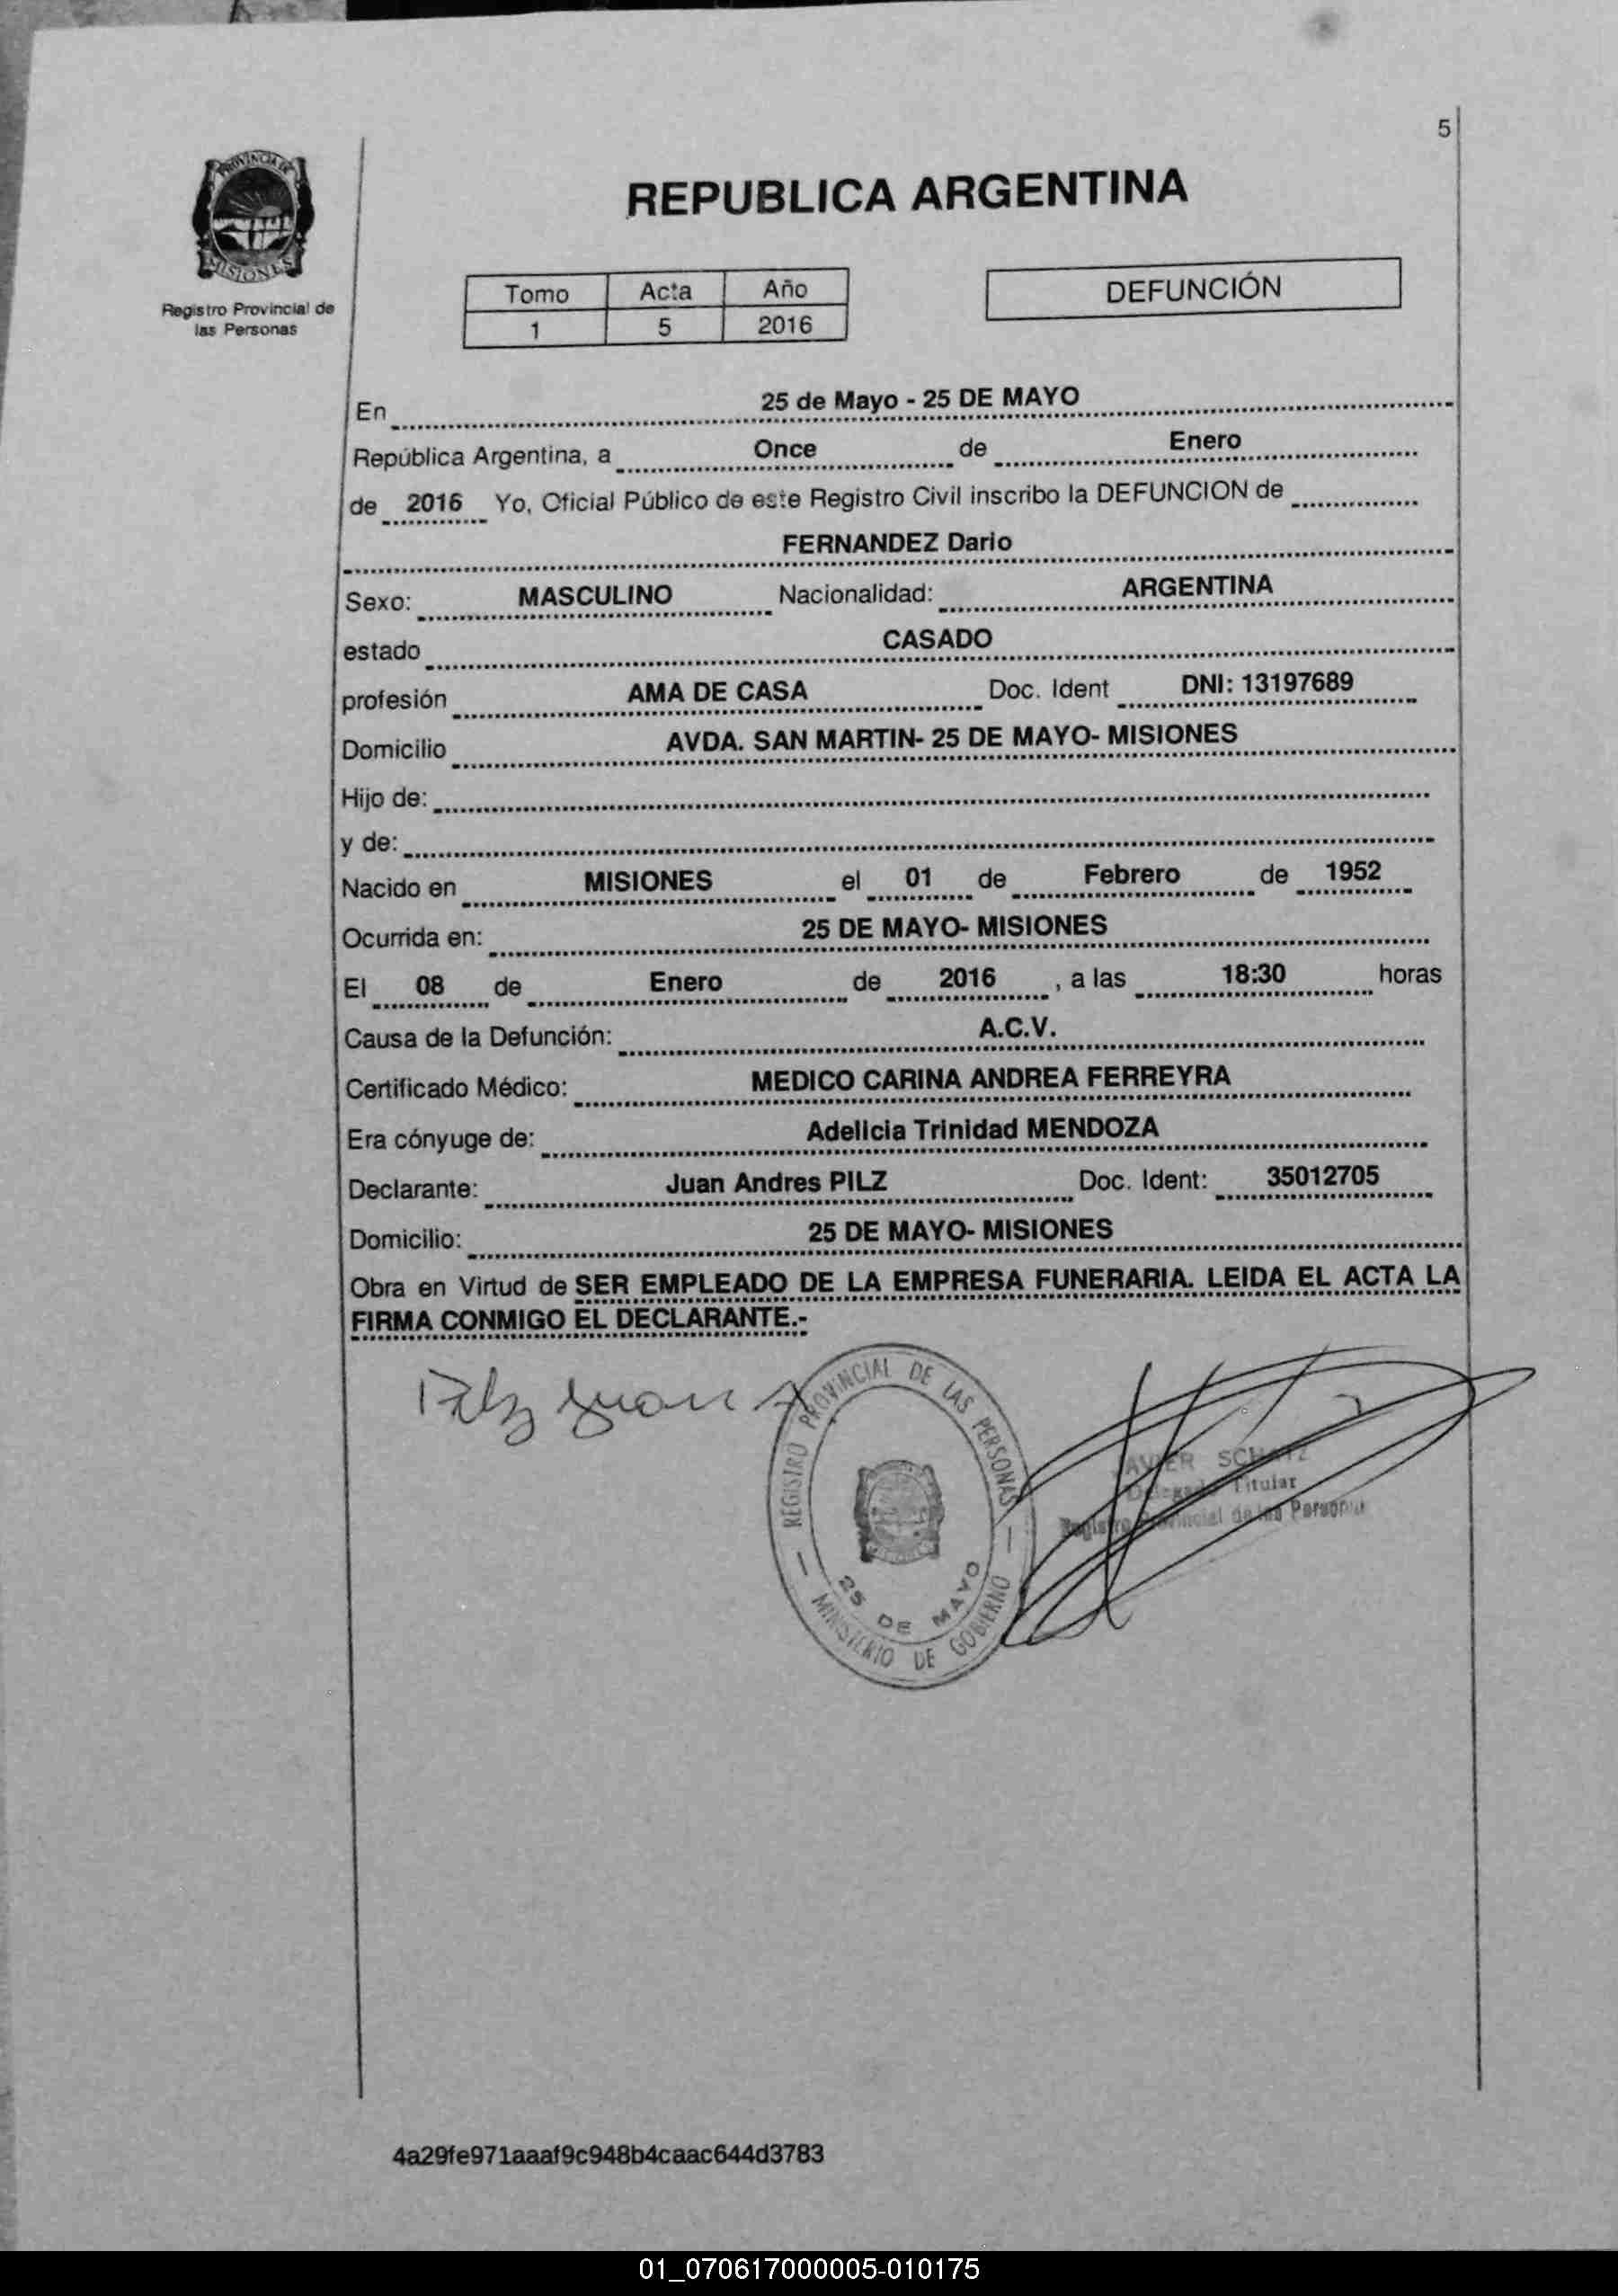 5
PROVINCIA DE
MISIONES
Registro Provincial de
las Personas
REPUBLICA ARGENTINA
Tomo Acta Año
1 5 2016
DEFUNCIÓN
En 25 de Mayo - 25 DE MAYO
República Argentina, a Once de Enero
de 2016 Yo, Oficial Público de este Registro Civil inscribo la DEFUNCION de
FERNANDEZ Dario
Sexo: MASCULINO Nacionalidad: ARGENTINA
estado CASADO
profesión AMA DE CASA Doc. Ident DNI: 13197689
Domicilio AVDA. SAN MARTIN- 25 DE MAYO- MISIONES
Hijo de:
y de:
Nacido en MISIONES el 01 de Febrero de 1952
Ocurrida en: 25 DE MAYO- MISIONES
El 08 de Enero de 2016 , a las 18:30 horas
Causa de la Defunción: A.C.V.
Certificado Médico: MEDICO CARINA ANDREA FERREYRA
Era cónyuge de: Adelicia Trinidad MENDOZA
Declarante: Juan Andres PILZ Doc. Ident: 35012705
Domicilio: 25 DE MAYO- MISIONES
Obra en Virtud de SER EMPLEADO DE LA EMPRESA FUNERARIA. LEIDA EL ACTA LA
FIRMA CONMIGO EL DECLARANTE.-
Pilz Juan A
REGISTRO PROVINCIAL DE LAS PERSONAS
25 DE MAYO
MINISTERIO DE GOBIERNO
JAVIER
Delegado Titular
Registro Provincial de las Personas
4a29fe971aaaf9c948b4caac644d3783
01_070617000005-010175